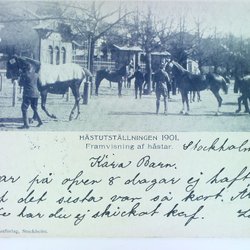 HÄSTUTSTÄLLNINGEN 1901.
Framvisning af hästar.
Stockholm
Kära Barn.
ar på öfver 8 dagar ej haft
det sista var så kort.
har du ej skickat kaf.
Stockholm.